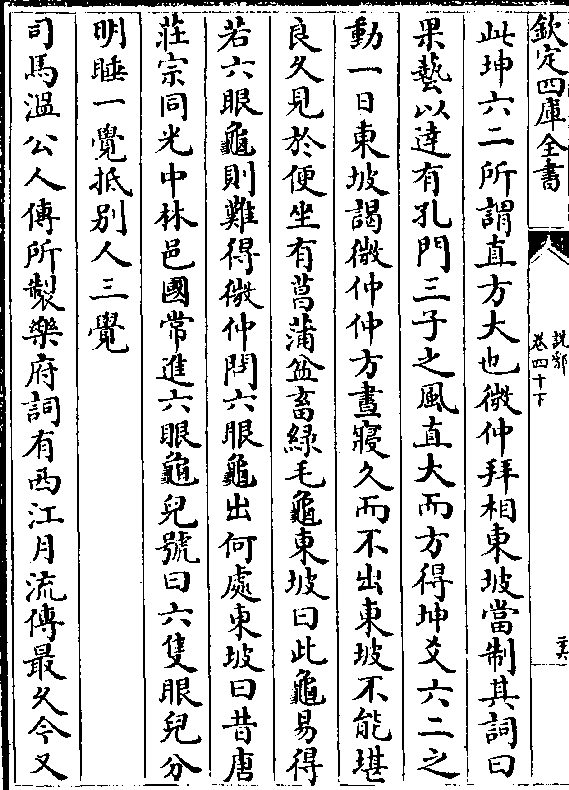 欽定四庫全書
說郛
卷四十下
此坤六二所謂直方大也微仲拜相東坡當制其詞曰
果藝以達有孔門三子之風直大而方得坤爻六二之
動一日東坡謁微仲仲方晝寢久而不出東坡不能堪
良久見於便坐有菖蒲盆畜緑毛龜東坡曰此龜易得
若六眼龜則難得微仲問六眼龜出何處東坡曰昔唐
莊宗同光中林邑國常進六眼龜兒號曰六隻眼兒分
明睡一覺抵别人三覺
司馬溫公人傳所製樂府詞有西江月流傳最久今又